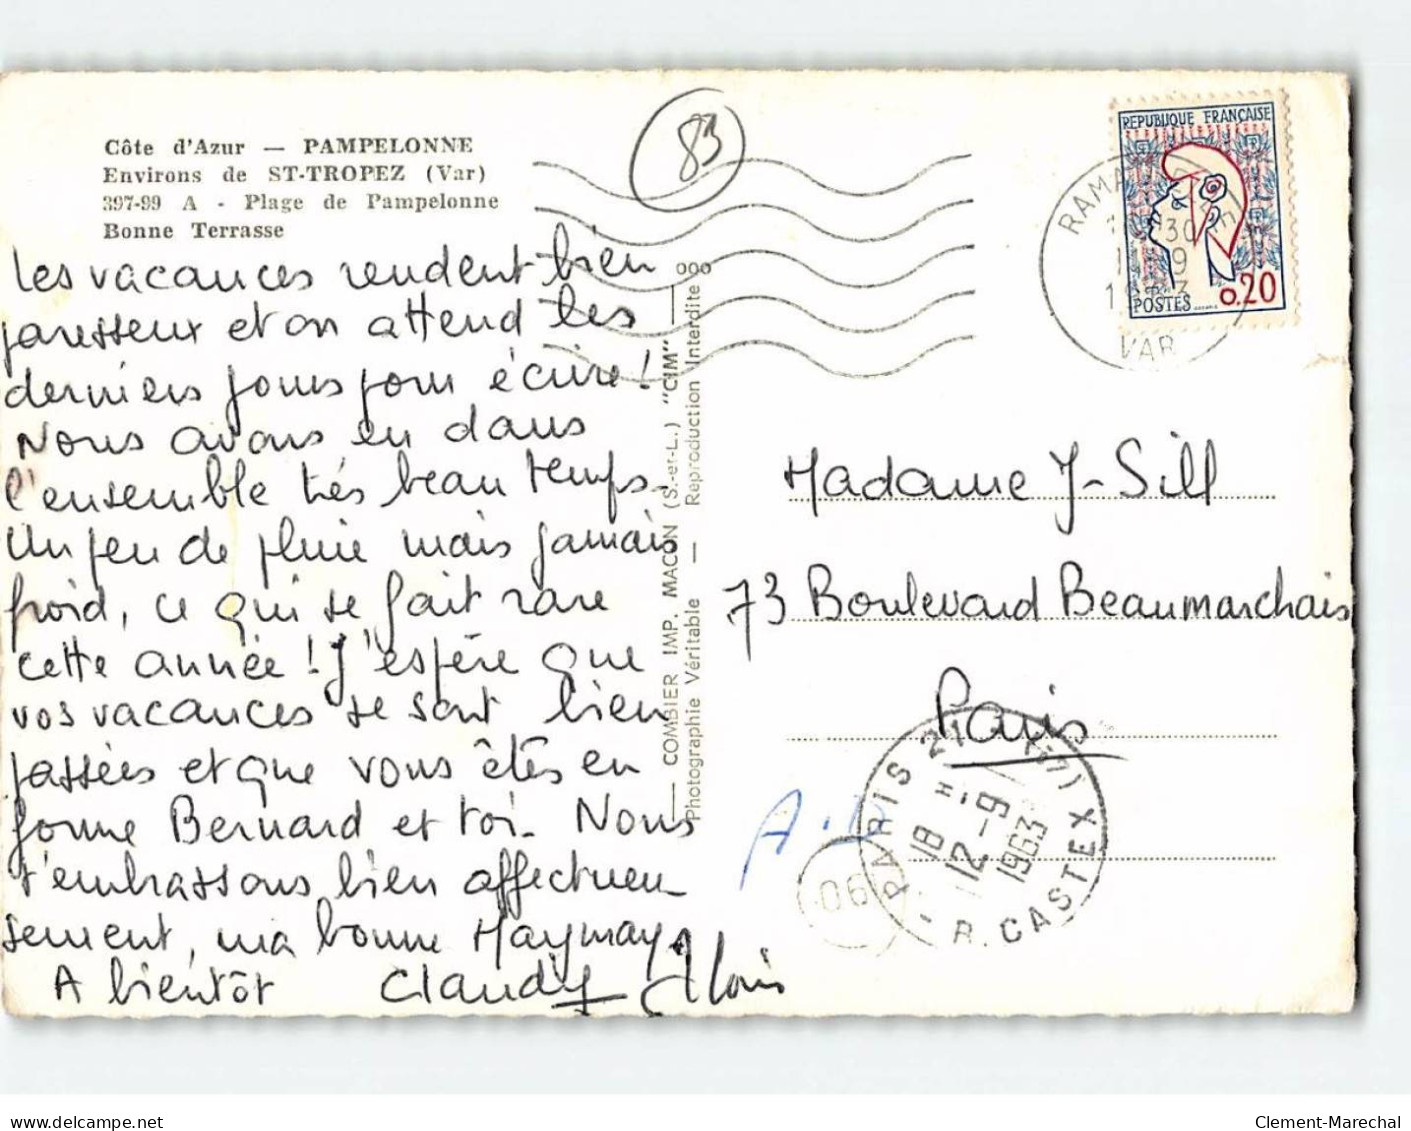 Côte d'Azur — PAMPELONNE
Environs de ST-TROPEZ (Var)
397-99 A - Plage de Pampelonne
Bonne Terrasse
83
RÉPUBLIQUE FRANÇAISE
POSTES 0,20
VAR
Les vacances rendent bien
paresseux et on attend les
derniers jours pour écrire !
Nous avons eu dans
l'ensemble très beau temps.
Un peu de pluie mais jamais
froid, ce qui se fait rare
cette année ! J'espère que
vos vacances se sont bien
passées et que vous êtes en
forme Bernard et toi. Nous
t'embrassons bien affectueu-
sement, ma bonne Maymay.
A bientôt Claudy
— COMBIER IMP. MACON (S.-et-L.) "CIM" —
Photographie Véritable — Reproduction Interdite
Madame J-Sill
73 Boulevard Beaumarchais
Paris
06
PARIS
18 H
12-9
1963
R. CASTEX
delcampe.net
Clement-Marechal